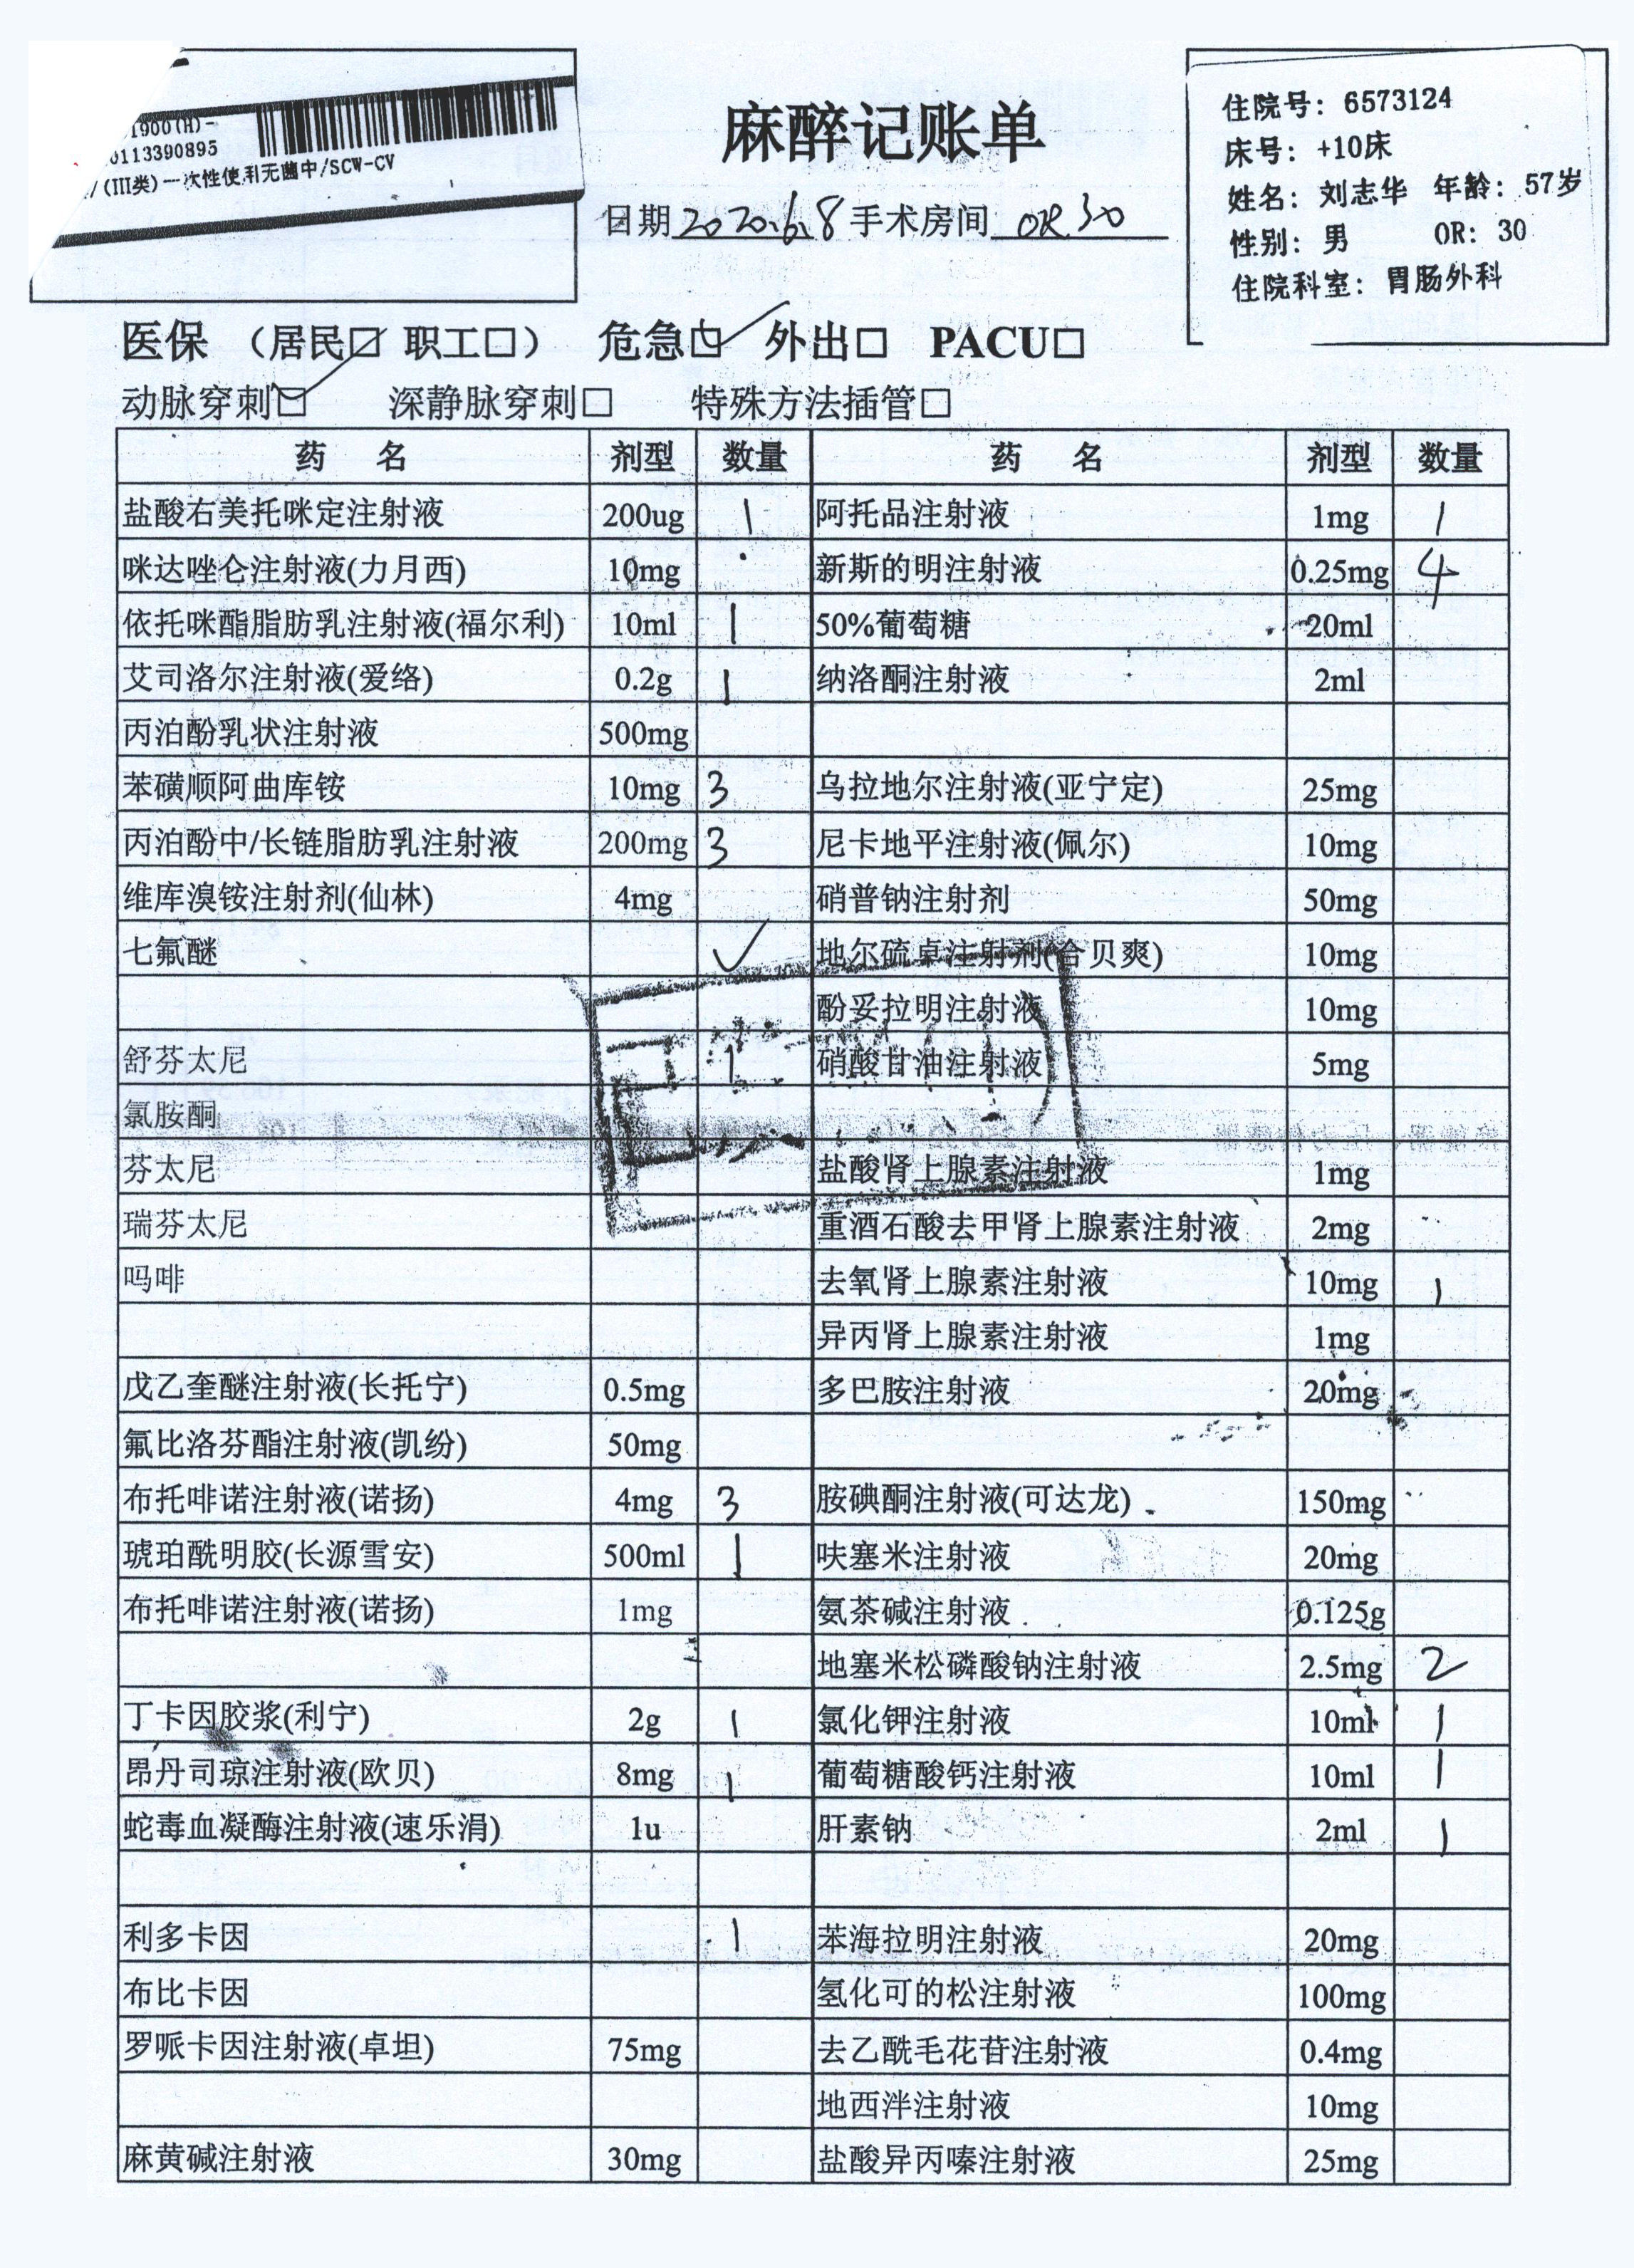 1900(H)-
0113390895
/(III类)一次性使用无菌中/SCW-CV
麻醉记账单
日期 2020.6.8 手术房间 OR30
住院号: 6573124
床号: +10床
姓名: 刘志华 年龄: 57岁
性别: 男 OR: 30
住院科室: 胃肠外科
医保 （居民□ 职工□） 危急□ 外出□ PACU□
动脉穿刺□ 深静脉穿刺□ 特殊方法插管□
药 名 剂型 数量 药 名 剂型 数量
盐酸右美托咪定注射液 200ug 1 阿托品注射液 1mg 1
咪达唑仑注射液(力月西) 10mg 新斯的明注射液 0.25mg 4
依托咪酯脂肪乳注射液(福尔利) 10ml 1 50%葡萄糖 20ml
艾司洛尔注射液(爱络) 0.2g 1 纳洛酮注射液 2ml
丙泊酚乳状注射液 500mg
苯磺顺阿曲库铵 10mg 3 乌拉地尔注射液(亚宁定) 25mg
丙泊酚中/长链脂肪乳注射液 200mg 3 尼卡地平注射液(佩尔) 10mg
维库溴铵注射剂(仙林) 4mg 硝普钠注射剂 50mg
七氟醚 ✓ 地尔硫卓注射剂(合贝爽) 10mg
酚妥拉明注射液 10mg
舒芬太尼 1 硝酸甘油注射液 5mg
氯胺酮
芬太尼 盐酸肾上腺素注射液 1mg
瑞芬太尼 重酒石酸去甲肾上腺素注射液 2mg
吗啡 去氧肾上腺素注射液 10mg 1
异丙肾上腺素注射液 1mg
戊乙奎醚注射液(长托宁) 0.5mg 多巴胺注射液 20mg
氟比洛芬酯注射液(凯纷) 50mg
布托啡诺注射液(诺扬) 4mg 3 胺碘酮注射液(可达龙) 150mg
琥珀酰明胶(长源雪安) 500ml 1 呋塞米注射液 20mg
布托啡诺注射液(诺扬) 1mg 氨茶碱注射液 0.125g
地塞米松磷酸钠注射液 2.5mg 2
丁卡因胶浆(利宁) 2g 1 氯化钾注射液 10ml 1
昂丹司琼注射液(欧贝) 8mg 1 葡萄糖酸钙注射液 10ml 1
蛇毒血凝酶注射液(速乐涓) 1u 肝素钠 2ml 1
利多卡因 1 苯海拉明注射液 20mg
布比卡因 氢化可的松注射液 100mg
罗哌卡因注射液(卓坦) 75mg 去乙酰毛花苷注射液 0.4mg
地西泮注射液 10mg
麻黄碱注射液 30mg 盐酸异丙嗪注射液 25mg